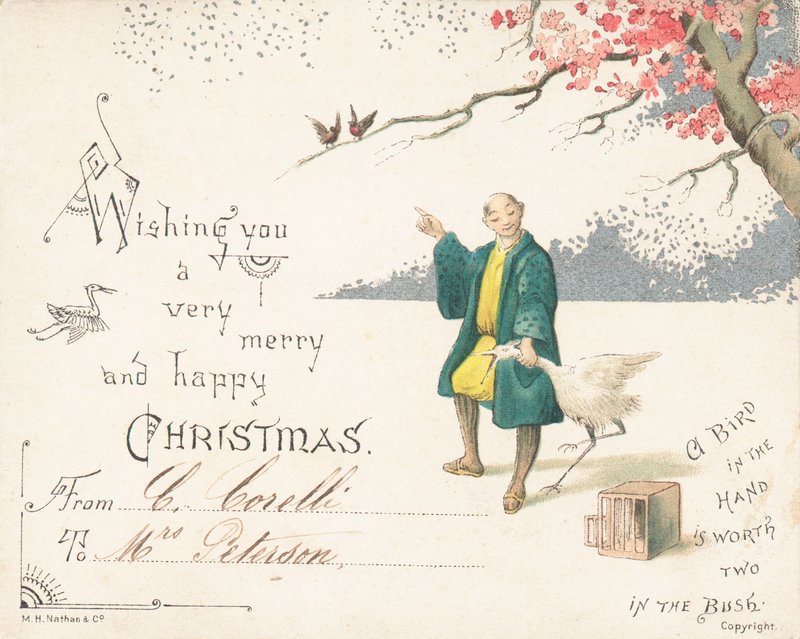 Wishing you
a
very
merry
and happy
CHRISTMAS.
From C. Corelli
To Mrs Peterson,
A BIRD
IN THE
HAND
IS WORTH
TWO
IN THE BUSH.
M. H. Nathan & Co
Copyright.